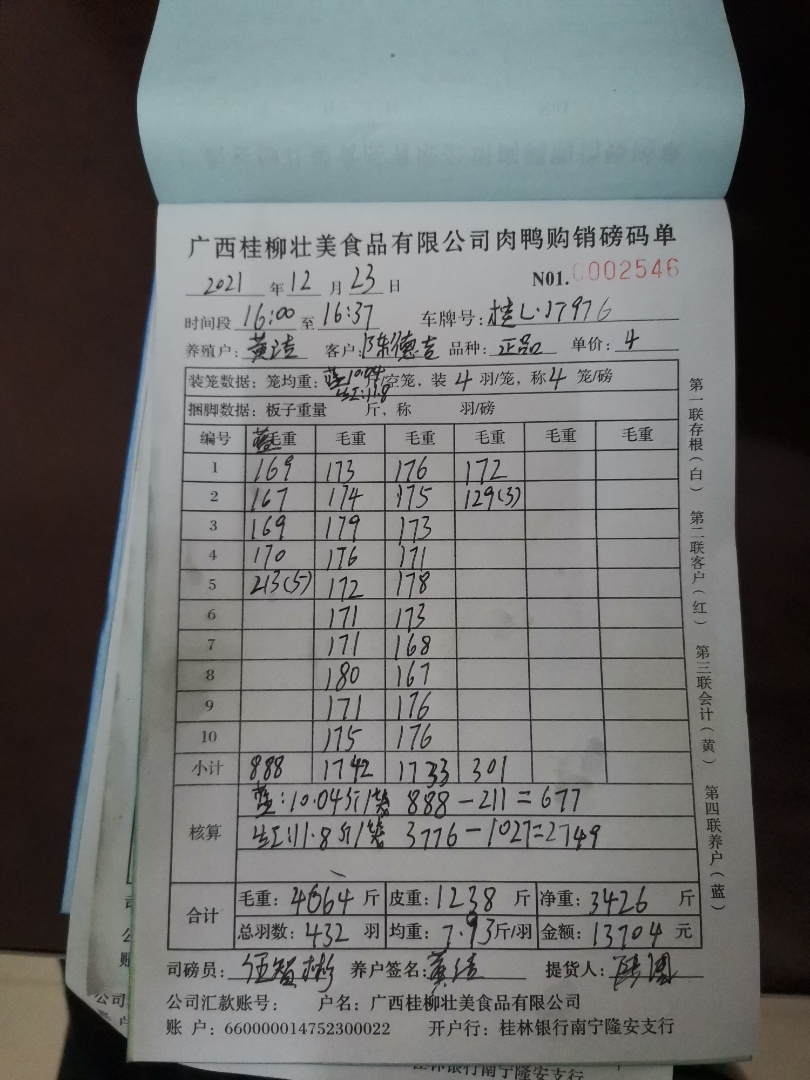 广西桂柳壮美食品有限公司肉鸭购销磅码单
2021 年 12 月 23 日 N01. 0002546
时间段 16:00 至 16:37 车牌号: 桂L·J7976
养殖户: 黄洁 客户: 陈德吉 品种: 正品 单价: 4
装笼数据: 笼均重: 蓝10.04 斤/空笼, 装 4 羽/笼, 称 4 笼/磅
红:11.8
捆脚数据: 板子重量 斤, 称 羽/磅
编号 蓝毛重 毛重 毛重 毛重 毛重 毛重
1 169 173 176 172
2 167 174 175 129(3)
3 169 179 173
4 170 176 171
5 213(5) 172 178
6 171 173
7 171 168
8 180 167
9 171 176
10 175 176
小计 888 1742 1733 301
核算
蓝:10.04斤/笼 888-211=677
红:11.8斤/笼 3776-1027=2749
合计
毛重: 4664 斤 皮重: 1238 斤 净重: 3426 斤
总羽数: 432 羽 均重: 7.93 斤/羽 金额: 13704 元
司磅员: 伍智彬 养户签名: 黄洁 提货人:
公司汇款账号: 户名: 广西桂柳壮美食品有限公司
账 户: 660000014752300022 开户行: 桂林银行南宁隆安支行
第一联存根(白) 第二联客户(红) 第三联会计(黄) 第四联养户(蓝)
司
公
账
公司
桂林银行南宁隆安支行